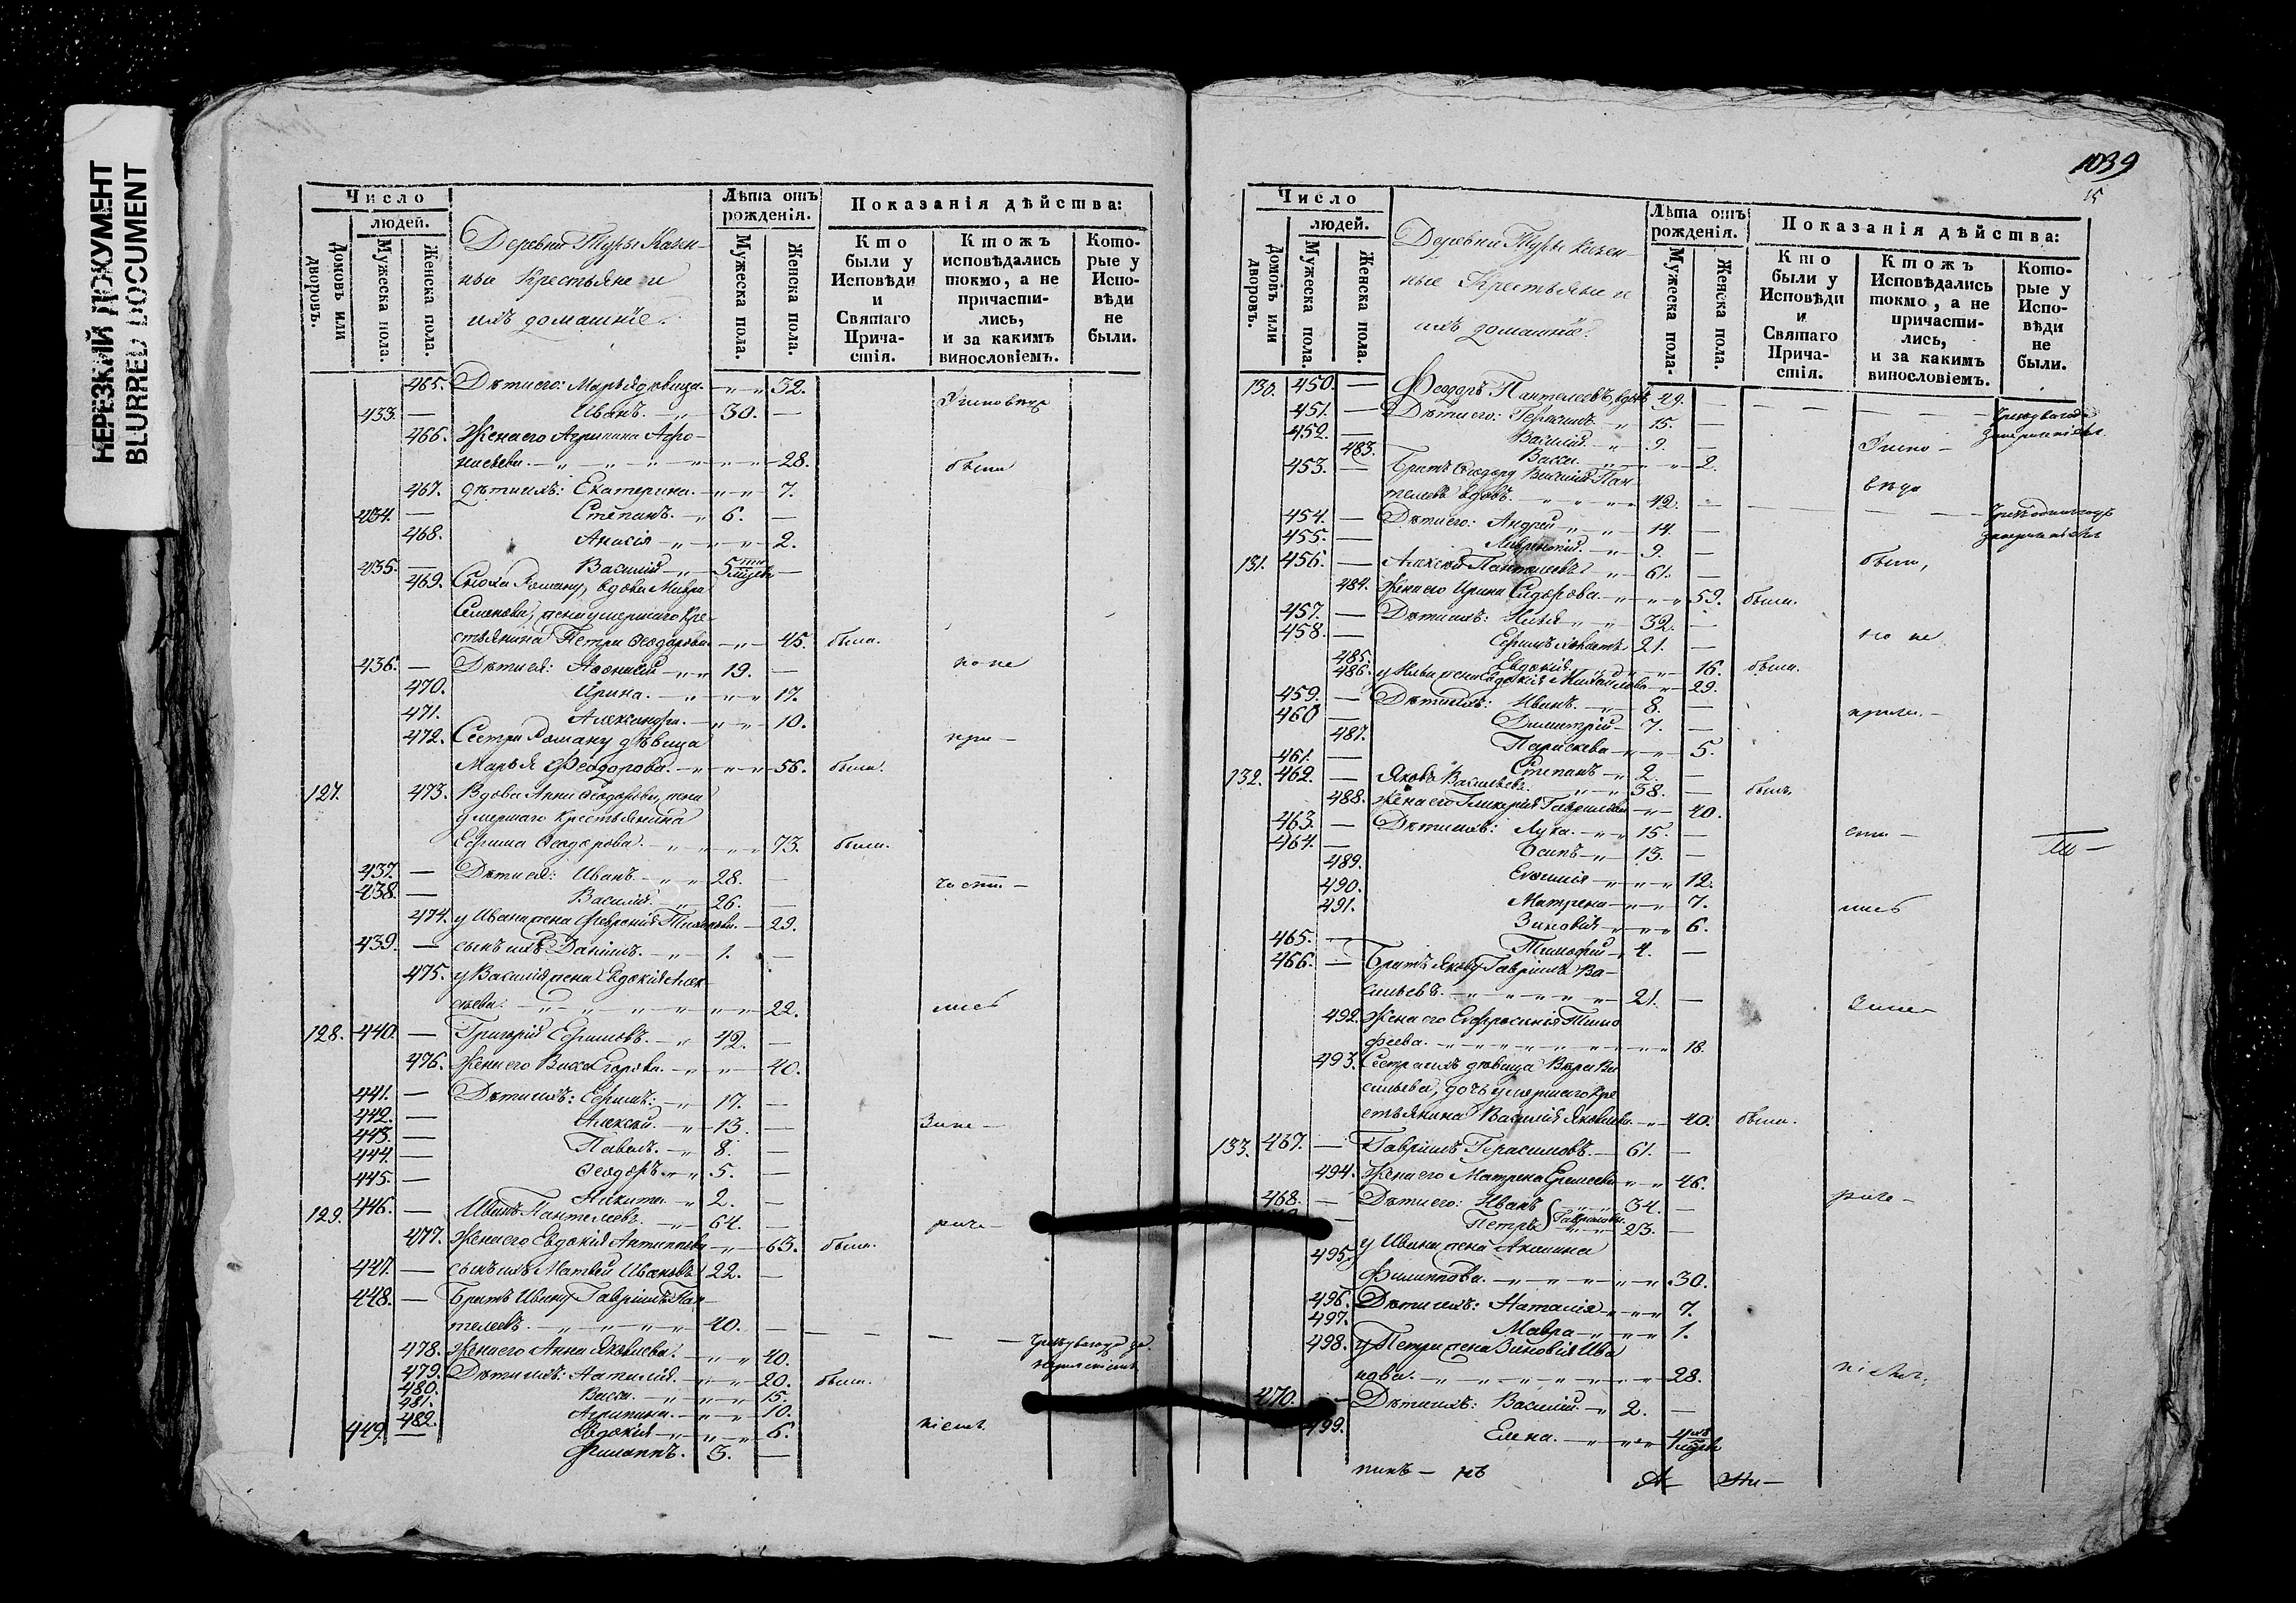 НЕРЕЗКИЙ ДОКУМЕНТ
BLURRED DOCUMENT
Число
людей.
Домовъ или дворовъ.
Мужеска пола.
Женска пола.
Деревни Туры Казен-
ныя Крестьяне и
ихъ домашніе.
Лѣта отъ рожденія.
Мужеска пола.
Женска пола.
Показанія дѣйства:
Кто были у Исповѣди и Святаго Прича-стія.
Ктожъ исповѣдались токмо, а не причасти-лись, и за какимъ винословіемъ.
Кото-рые у Испо-вѣди не были.
465. Дѣти его: Марья дѣвица. 32.
433. — Иванъ. 30. —
466. Жена его Агрипина Афо-
насьева. 28.
467. дѣти ихъ: Екатерина. 7.
434. — Степанъ. 6. —
468. Анасія 2.
435. — Василій 5
469. Сноха Роману, вдова Мавра
Семенова, жена умершаго Кре-
стьянина Петра Ѳеодорова. 45. была.
436. — Дѣти ея: Афонасій 19. — но не
470. Ирина. 17.
471. Александра. 10.
472. Сестра Роману дѣвица при-
Марья Феодорова. 56. была.
127. 473. Вдова Анна Ѳеодорова, жена
умершаго Крестьянина
Ефима Ѳеодорова. 73. была.
437. — Дѣти ея: Иванъ. 28. —
438. — Василій. 26. —
474. у Ивана жена Февронія 29.
439. — сынъ ихъ Даніилъ. 1. —
475. у Василія жена Евдокія Алек-
сѣева. 22.
128. 440. — Григорій Ефимовъ. 42. —
476. Жена его Васса Егорова. 40.
441. — Дѣти ихъ: Ефимъ. 17. —
442. — Алексѣй. 13. —
443. — Павелъ. 8. —
444. — Ѳеодоръ. 5. —
445. — Никита. 2. —
129. 446. — Иванъ Пантелеевъ. 64. —
477. Жена его Евдокія Антипова 63. была.
447. — сынъ ихъ Матвей Ивановъ 22. —
448. — Братъ Ивану Гавріилъ Пан-
телеевъ. 40. —
478. Жена его Анна Яковлева. 40.
479. Дѣти ихъ: Наталія. 20. была.
480. Васса. 15.
481. Агрипина. 10.
482. Евдокія 6.
449. — Филиппъ. 3. —
1039
15
Число
людей.
Домовъ или дворовъ.
Мужеска пола.
Женска пола.
Деревни Туры Казен-
ные Крестьяне и
ихъ домашніе.
Лѣта отъ рожденія.
Мужеска пола.
Женска пола.
Показанія дѣйства:
Кто были у Исповѣди и Святаго Прича-стія.
Ктожъ Исповѣдались токмо, а не причасти-лись, и за какимъ винословіемъ.
Кото-рые у Испо-вѣди не были.
130. 450. — Феодоръ Пантелеевъ, вдовъ 49. —
451. — Дѣти его: Герасимъ 15. —
452. — Василій 9. —
483. Васса. 2.
453. — Братъ Ѳеодору Василій Пан-
телеевъ вдовъ. 42. —
454. — Дѣти его: Андрей 14. —
455. — Лаврентій. 9. —
131. 456. — Алексѣй Пантелеевъ 61. —
484. Жена его Ирина Сидорова. 59. была.
457. — Дѣти ихъ: Илья 32. —
458. — Ефимъ холостъ 21. — но не
485. Евдокія. 16. была.
486. у Ильи жена Евдокія Михайлова 29.
459. — Дѣти ихъ: Иванъ. 8. —
460 — Димитрій 7. —
487. Параскева 5.
461. — Степанъ 2. —
132. 462. — Яковъ Васильевъ. 38. — былъ
488. Жена его Гликерія Гаврилова 40.
463. — Дѣти ихъ: Лука. 15. — сти-
464. — Осипъ 13. —
489. Евѳимія 12.
490. Матрена 7.
491. Зиновія 6.
465. — Тимофей 4. —
466. — Братъ Якову Гавріилъ Ва-
сильевъ. 21. —
492. Жена его Евфросинія Тимо
феева. 18.
493. Сестра ихъ дѣвица Вѣра Ва
сильева, дочь умершаго Кре
стьянина Василія Яковлева. 40. была.
133. 467. — Гавріилъ Герасимовъ. 61. —
494. Жена его Матрена Ермеева 46.
468. — Дѣти его: Иванъ 34. —
Петръ Гавриловы 23. —
495. у Ивана жена Акилина
Филиппова. 30.
496. Дѣти ихъ: Наталія 7.
497. Мавра 1.
498. у Петра жена Зиновія Ива
нова. 28.
470. — Дѣти ихъ: Василій. 2. —
499. Елена.